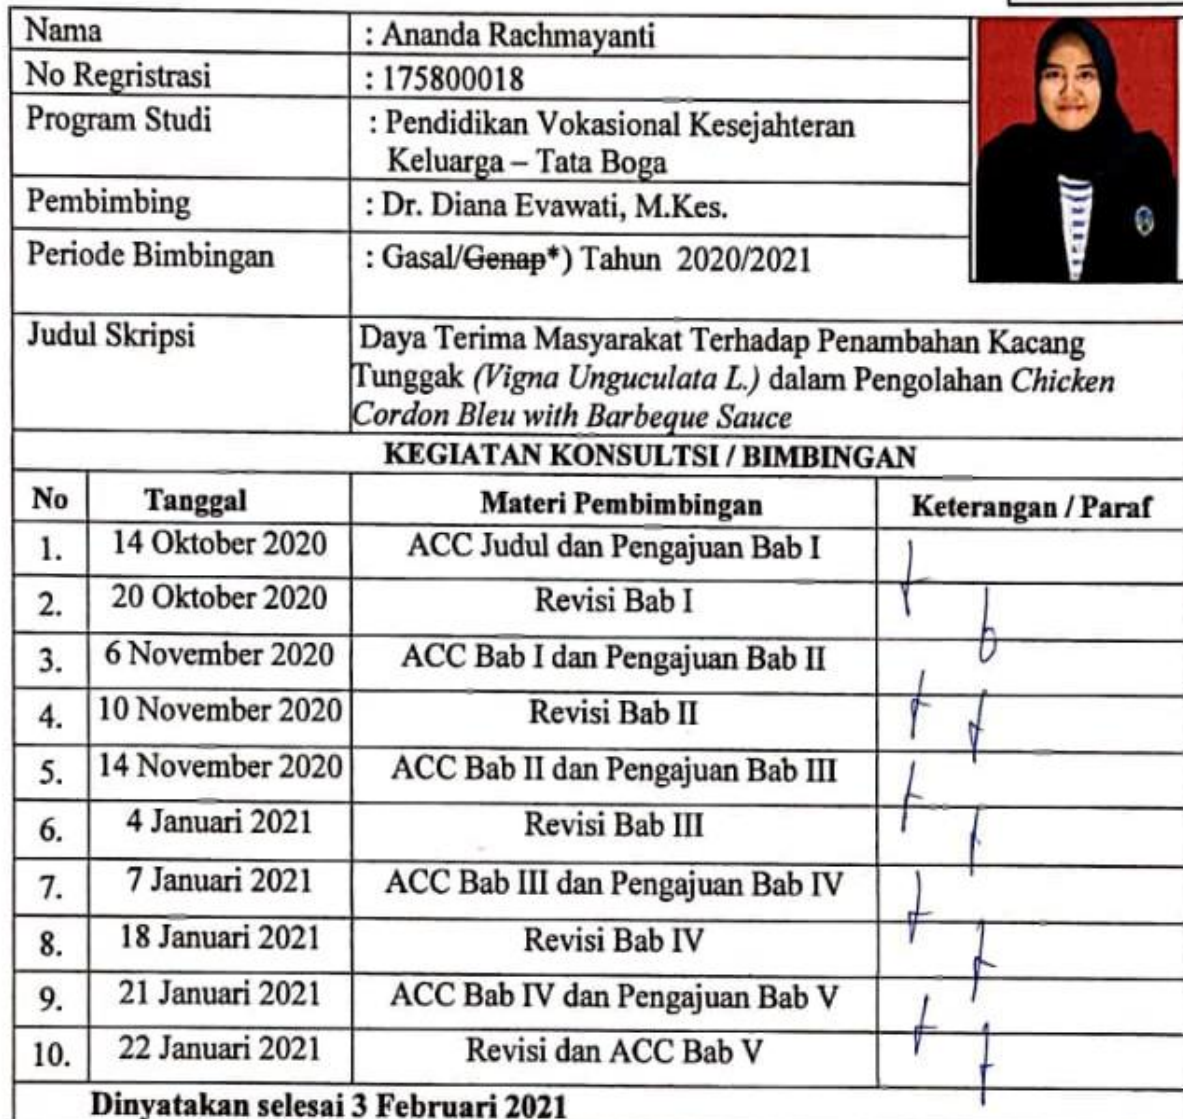 Nama : Ananda Rachmayanti
No Regristrasi : 175800018
Program Studi : Pendidikan Vokasional Kesejahteran
Keluarga – Tata Boga
Pembimbing : Dr. Diana Evawati, M.Kes.
Periode Bimbingan : Gasal/Genap*) Tahun 2020/2021
Judul Skripsi Daya Terima Masyarakat Terhadap Penambahan Kacang
Tunggak (Vigna Unguculata L.) dalam Pengolahan Chicken
Cordon Bleu with Barbeque Sauce
KEGIATAN KONSULTSI / BIMBINGAN
No Tanggal Materi Pembimbingan Keterangan / Paraf
1. 14 Oktober 2020 ACC Judul dan Pengajuan Bab I
2. 20 Oktober 2020 Revisi Bab I
3. 6 November 2020 ACC Bab I dan Pengajuan Bab II
4. 10 November 2020 Revisi Bab II
5. 14 November 2020 ACC Bab II dan Pengajuan Bab III
6. 4 Januari 2021 Revisi Bab III
7. 7 Januari 2021 ACC Bab III dan Pengajuan Bab IV
8. 18 Januari 2021 Revisi Bab IV
9. 21 Januari 2021 ACC Bab IV dan Pengajuan Bab V
10. 22 Januari 2021 Revisi dan ACC Bab V
Dinyatakan selesai 3 Februari 2021